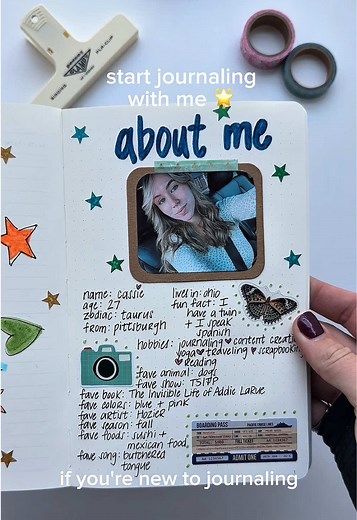 start journaling
with me ⭐
about me
name: cassie
age: 27
zodiac: taurus
from: pittsburgh
lives in: ohio
fun fact: I
have a twin
+ I speak
spanish
hobbies: journaling ♥ content creation
yoga ♥ traveling ♥ scrapbooking
♥ reading
fave animal: dogs
fave show: TSITP
fave book: The Invisible Life of Addie LaRue
fave colors: blue + pink
fave artist: Hozier
fave season: fall
fave foods: sushi +
mexican food
fave song: butchered
tongue
BOARDING PASS
ADMIT ONE
if you're new to journaling